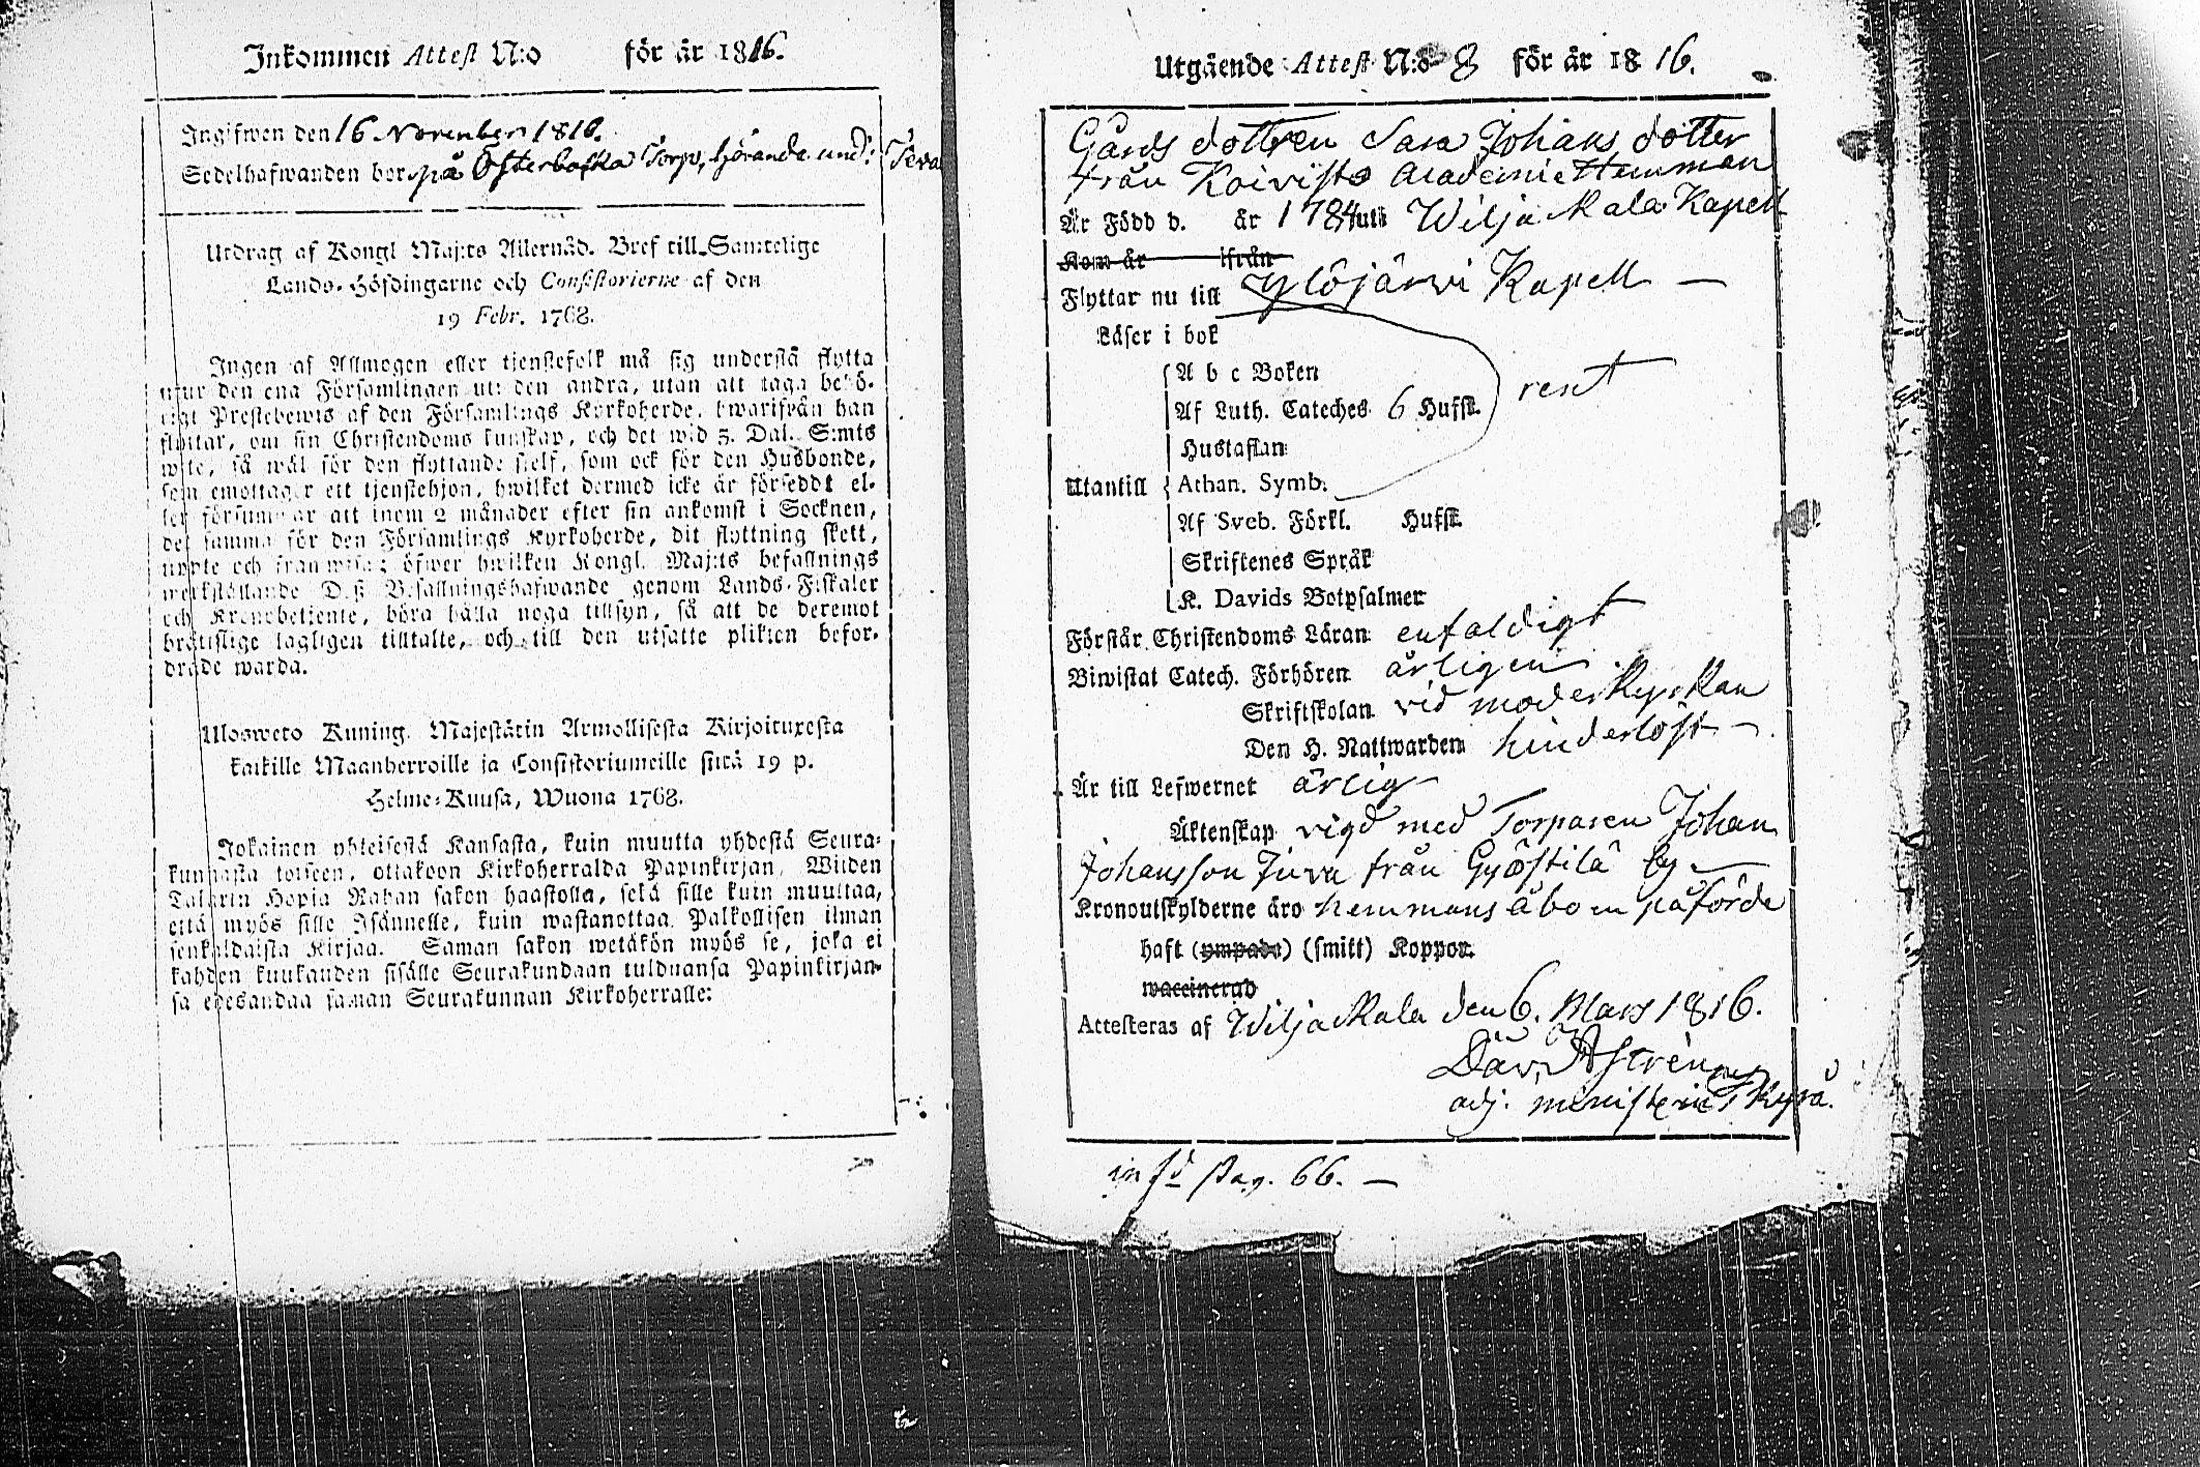 Inkommen Attest N:o för år 1816.
Ingifwen den 16 November 1816.
Sedelhafwanden bor på Österbacka Torp, hörande und:
Utdrag af Kongl Maj:ts Allernåd. Bref till Samtelige
Lands-Höfdingarne och Consistorierne af den
19 Febr. 1768.
Ingen af Allmogen eller tjenstefolk må sig understå flytta
utur den ena Församlingen uti den andra, utan att taga behö-
rigt Prestebewis af den Församlings Kyrkoherde, hwarifrån han
flyttar, om sin Christendoms kunskap, och det wid 5. Dal. S:mts
wite, så wäl för den flyttande sielf, som ock för den Husbonde,
som emottager ett tjenstehjon, hwilket dermed icke är försedt el-
ler försummar att inom 2 månader efter sin ankomst i Socknen,
det samma för den Församlings Kyrkoherde, dit flyttning skett,
uppte och framwisa; öfwer hwilken Kongl. Maj:ts befallnings
werkställande Deß Befallningshafwande genom Lands-Fiskaler
och Kronobetjente, böra hålla noga tillsyn, så att de deremot
brottslige lagligen tilltalte, och till den utsatte plikten befor-
drade warda.
Ulosweto Kuning. Majestätin Armollisesta Kirjoituxesta
kaikille Maanherroille ja Consistoriumeille siitä 19 p.
Helme-Kuusa, Wuona 1768.
Jokainen yhteisestä Kansasta, kuin muutta yhdestä Seura-
kunnasta toiseen, ottakoon Kirkoherralda Papinkirjan, Wiiden
Talarin Hopia Rahan sakon haastolla, sekä sille kuin muuttaa,
että myös sille Isännelle, kuin wastanottaa Palkollisen ilman
senkaldaista Kirjaa. Saman sakon wetäkön myös se, joka ei
kahden kuukauden sisälle Seurakundaan tulduansa Papinkirjan-
sa edesandaa saman Seurakunnan Kirkoherralle:
Utgående Attest N:o 8 för år 1816.
Gårds dottren Sara Johans dotter
från Koivisto Academie Hemman
Är Född d. år 1784 uti Wiljakkala Kapell
Kom år ifrån
Flyttar nu till Ylöjärvi Kapell —
Läser i bok
A b c Boken
Af Luth. Cateches 6 Hufst. rent
Hustaflan
Utantill Athan. Symb.
Af Sveb. Förkl. Hufst.
Skriftenes Språk
K. Davids Botpsalmer
Förstår Christendoms Läran enfaldigt
Biwistat Catech. Förhören årligen
Skriftskolan vid moderkyrkan
Den H. Nattwarden hinderlöst —
Är till Lefwernet ärlig
Äktenskap vigd med Torparen Johan
Johansson Juva från Gyöstilä by —
Kronoutskylderne äro hemmans åboen påförde
haft (ympade) (smitt) Koppor.
waccinerad
Attesteras af Wiljakkala den 6. Mars 1816.
Dav. Astrénius
adj. ministerii i Kyrå.
pag. 66. —